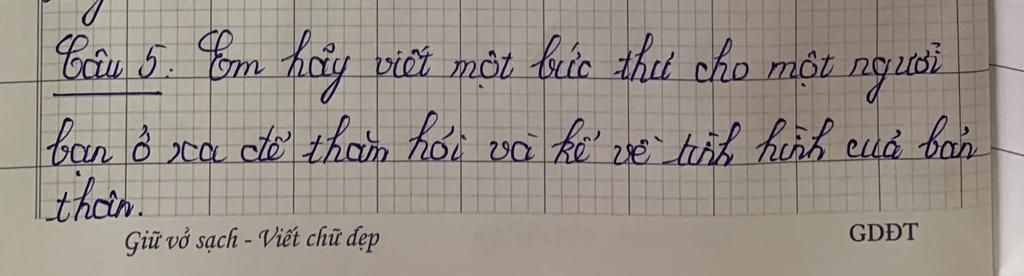 Câu 5. Em hãy viết một bức thư cho một người
bạn ở xa để thăm hỏi và kể về tình hình của bản
thân.
Giữ vở sạch - Viết chữ đẹp
GDĐT